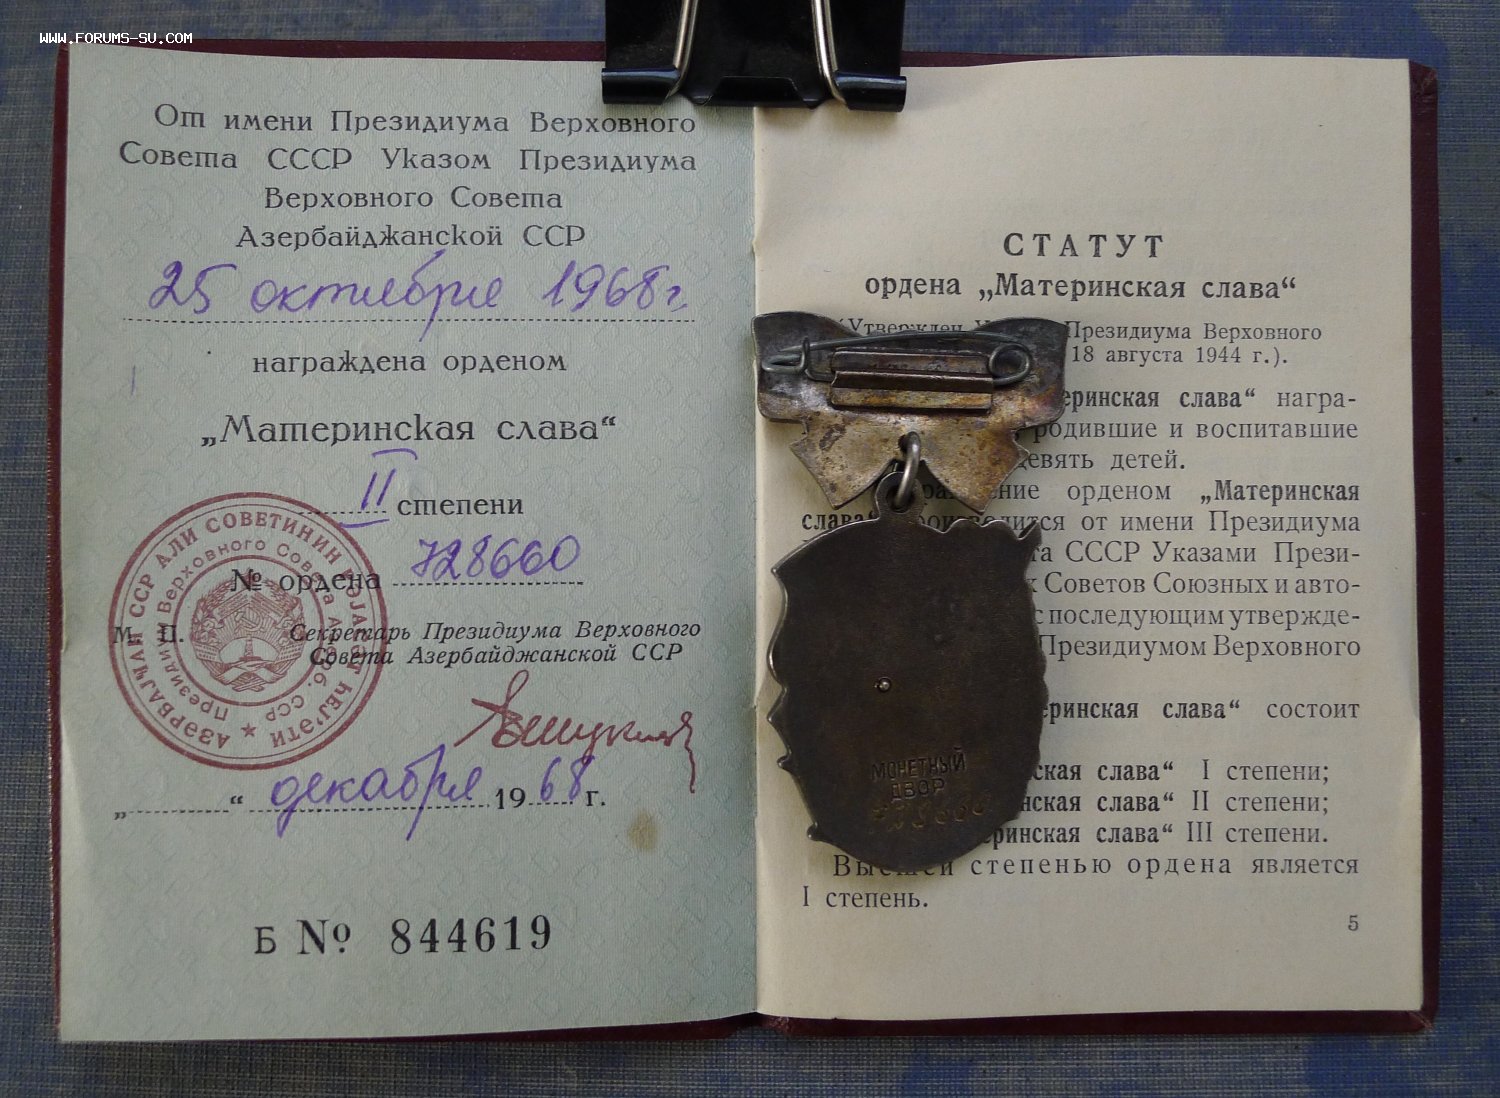 WWW.FORUMS-SU.COM
От имени Президиума Верховного
Совета СССР Указом Президиума
Верховного Совета
Азербайджанской ССР
25 октября 1968 г.
награждена орденом
„Материнская слава“
II степени
№ ордена 728660
М. П.
Секретарь Президиума Верховного
Совета Азербайджанской ССР
АЗƏРБАЈҸАН ССР АЛИ СОВЕТИНИН РӘЈАСӘТ ҺЕЈ'ӘТИ
Президиум Верховного Совета Азерб. ССР
„ “ декабря 1968 г.
Б № 844619
СТАТУТ
ордена „Материнская слава“
(Утвержден Президиума Верховного
18 августа 1944 г.).
слава“ награ-
родившие и воспитавшие
девять детей.
орденом „Материнская
слава“ производится от имени Президиума
СССР Указами Прези-
Советов Союзных и авто-
с последующим утвержде-
Президиумом Верховного
слава“ состоит
слава“ I степени;
слава“ II степени;
слава“ III степени.
Высшей степенью ордена является
I степень.
5
МОНЕТНЫЙ
ДВОР
728660